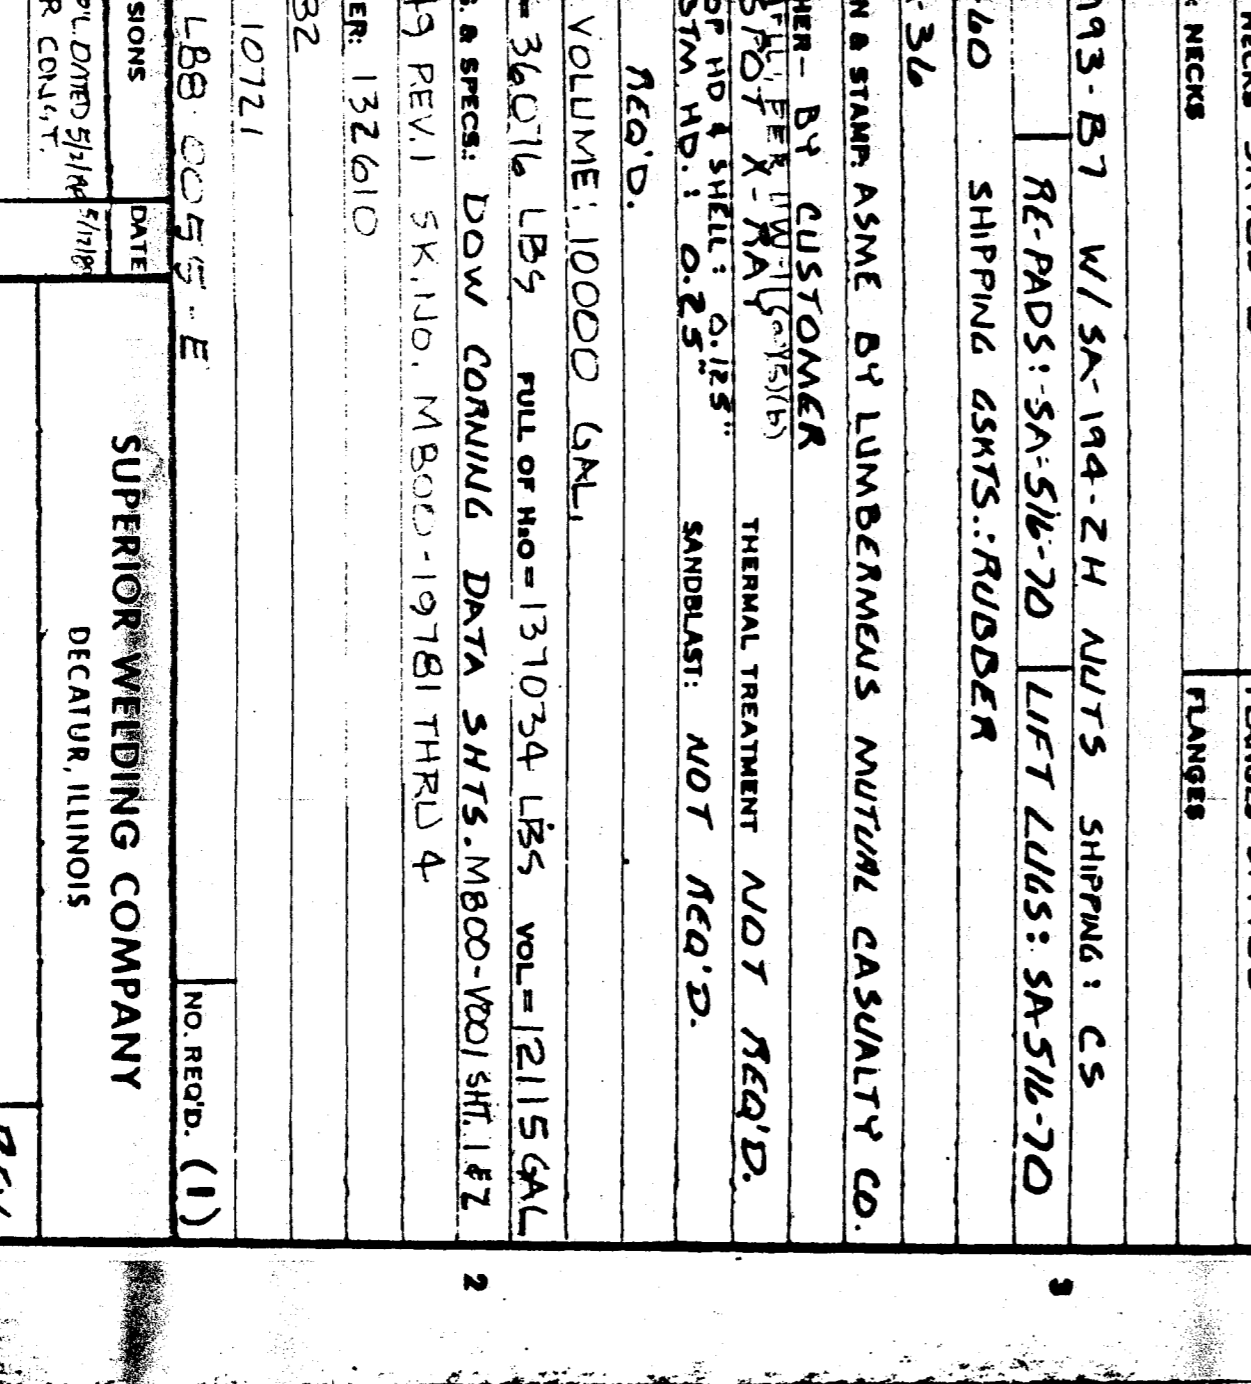 NECKS
FLANGES
193-B7 W/ SA-194-2H NUTS SHIPPING: CS
RE-PADS: SA-516-70 LIFT LUGS: SA-516-70
SHIPPING GSKTS.: RUBBER
-36
N & STAMP: ASME BY LUMBERMENS MUTUAL CASUALTY CO.
HER- BY CUSTOMER
SPOT X-RAY THERMAL TREATMENT NOT REQ'D.
OP HD & SHELL: 0.125"
STM HD.: 0.25" SANDBLAST: NOT REQ'D.
REQ'D.
VOLUME: 10000 GAL.
= 36076 LBS FULL OF H2O = 137034 LBS VOL = 12115 GAL
. & SPECS.: DOW CORNING DATA SHTS. M800-V001 SHT. 1 & 2
49 REV. 1 SK. NO. MB00-19781 THRU 4
ER: 132610
32
10721
LB8-0055-E NO. REQ'D. (1)
SIONS DATE
PL. DATED 5/2/
R CONST.
SUPERIOR WELDING COMPANY
DECATUR, ILLINOIS
2
3